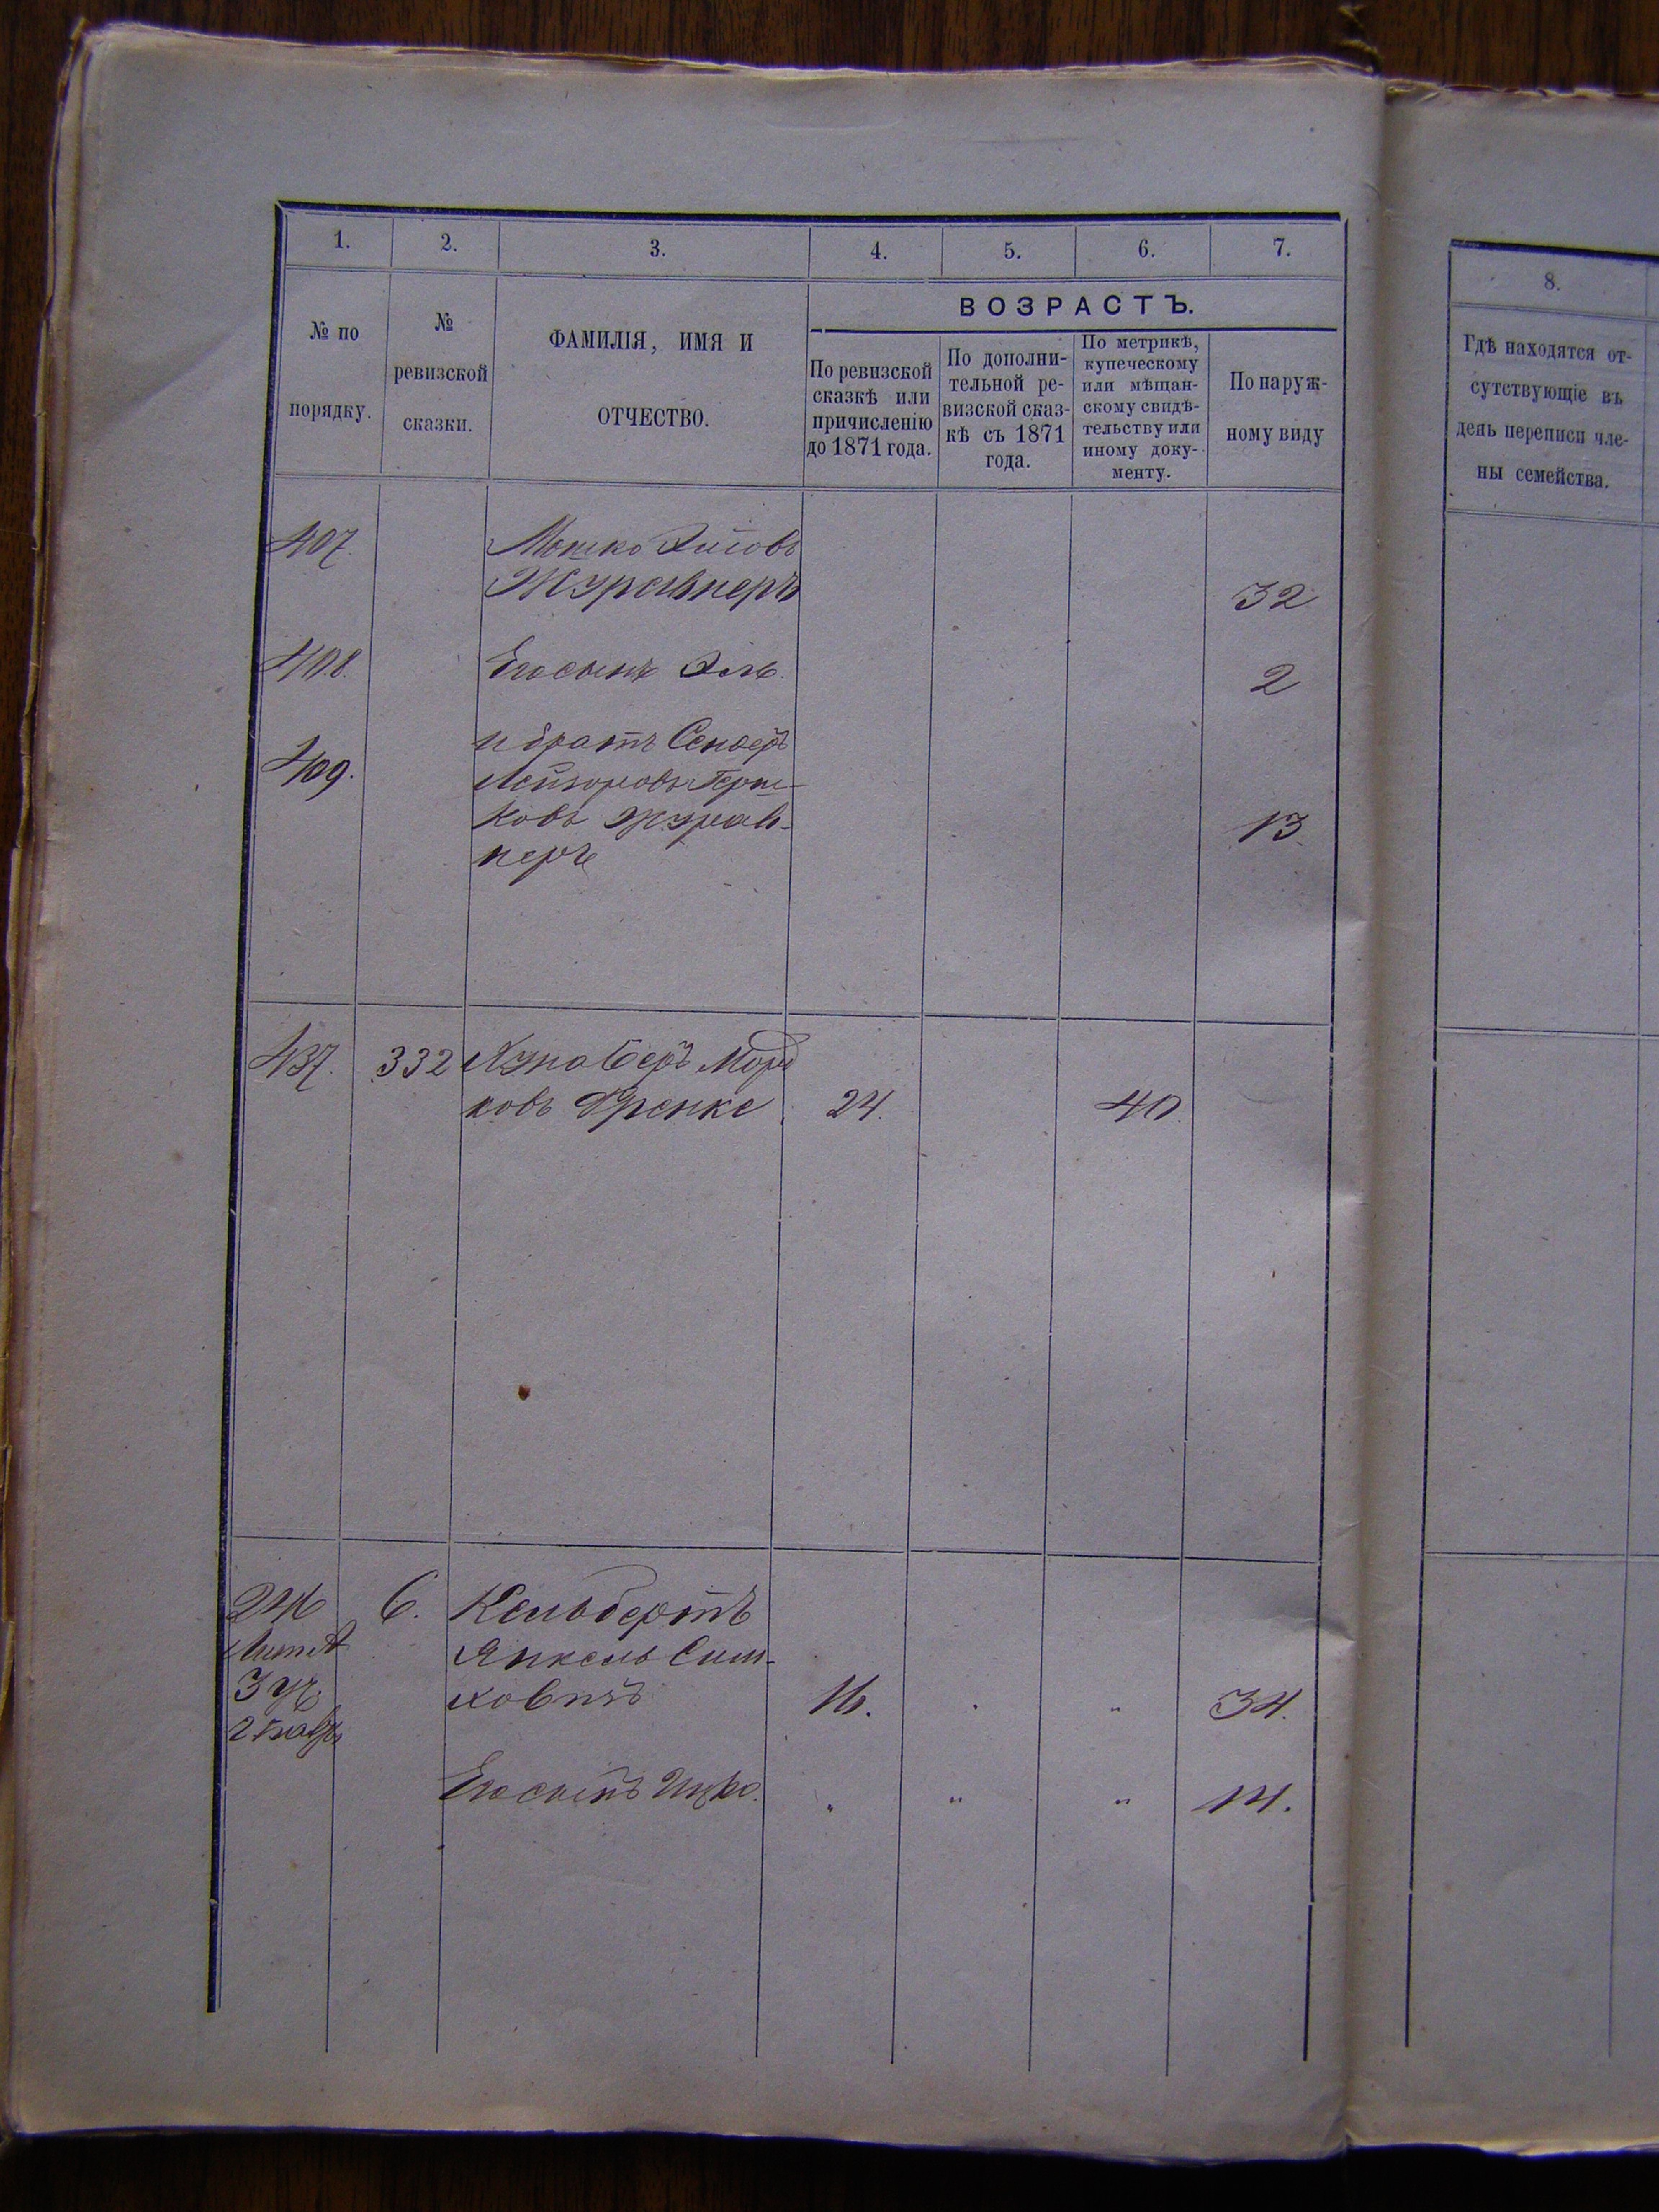 1. 2. 3. 4. 5. 6. 7.
№ по порядку.
№ ревизской сказки.
ФАМИЛІЯ, ИМЯ И ОТЧЕСТВО.
ВОЗРАСТЪ.
По ревизской
сказкѣ или
причисленію
до 1871 года.
По дополни-
тельной ре-
визской сказ-
кѣ съ 1871
года.
По метрикѣ,
купеческому
или мѣщан-
скому свидѣ-
тельству или
иному доку-
менту.
По наруж-
ному виду
407. Мошко
Журавнеръ 32
408. Его сынъ Эль 2
409. и братъ Сендеръ
Лейзоровъ Герш-
ковъ Журав- 13.
неръ
437. 332 Беръ Морд
ковъ Френкс 24. 40.
246 6. Кельбертъ
Янкель Сим-
3 уч. ховичъ 16. . „ 34.
Его сынъ Ицко. „ „ „ 14.
8.
Гдѣ находятся от-
сутствующіе въ
день переписи чле-
ны семейства.